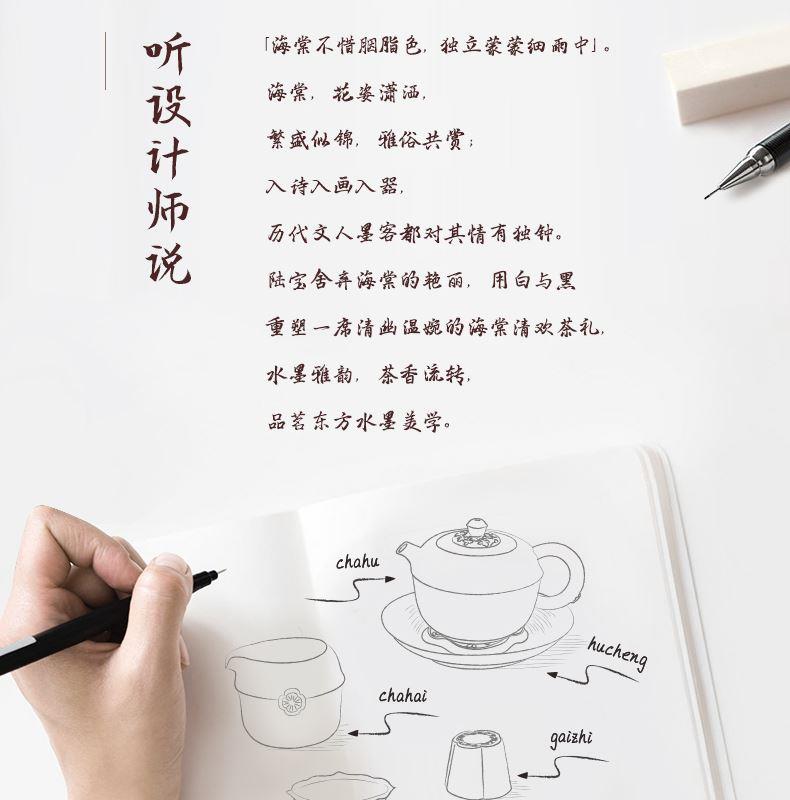 听设计师说
「海棠不惜胭脂色，独立蒙蒙细雨中」。
海棠，花姿潇洒，
繁盛似锦，雅俗共赏；
入诗入画入器，
历代文人墨客都对其情有独钟。
陆宝舍弃海棠的艳丽，用白与黑
重塑一席清幽温婉的海棠清欢茶礼，
水墨雅韵，茶香流转，
品茗东方水墨美学。
chahu
hucheng
chahai
gaizhi